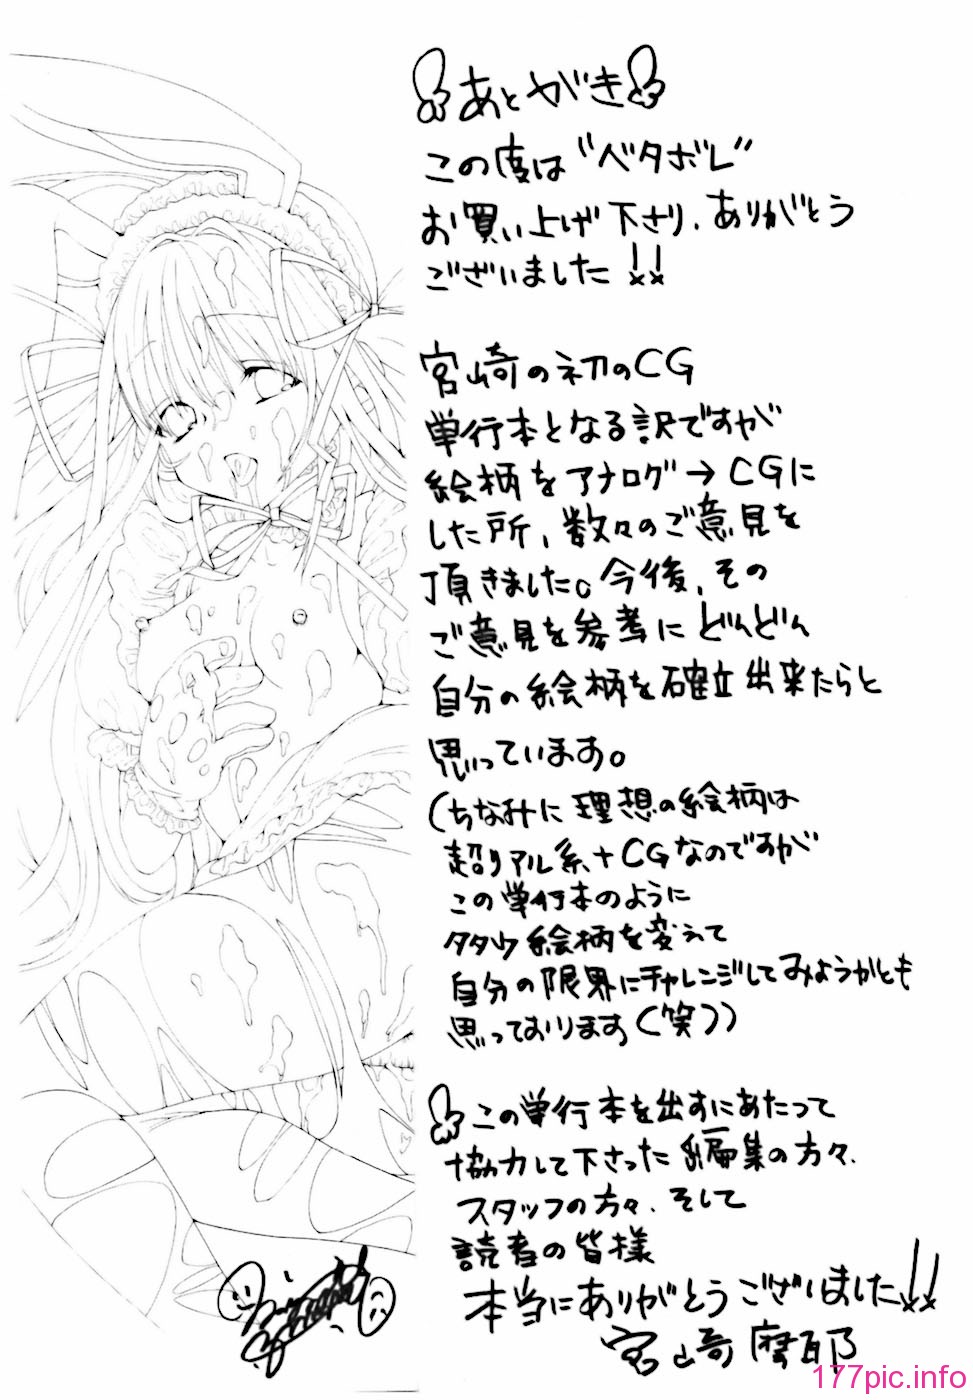 あとがき
この度は“ベタボレ”
お買い上げ下さり、ありがとう
ございました!!
宮崎の初のCG
単行本となる訳ですが
絵柄をアナログ→CGに
した所、数々のご意見を
頂きました。今後、その
ご意見を参考にどんどん
自分の絵柄を確立出来たらと
思っています。
(ちなみに理想の絵柄は
超リアル系+CGなのですが
この単行本のように
タタウ絵柄を変えて
自分の限界にチャレンジしてみようかとも
思っております(笑))
この単行本を出すにあたって
協力して下さった編集の方々、
スタッフの方々、そして
読者の皆様
本当にありがとうございました!!
宮崎摩耶
177pic.info